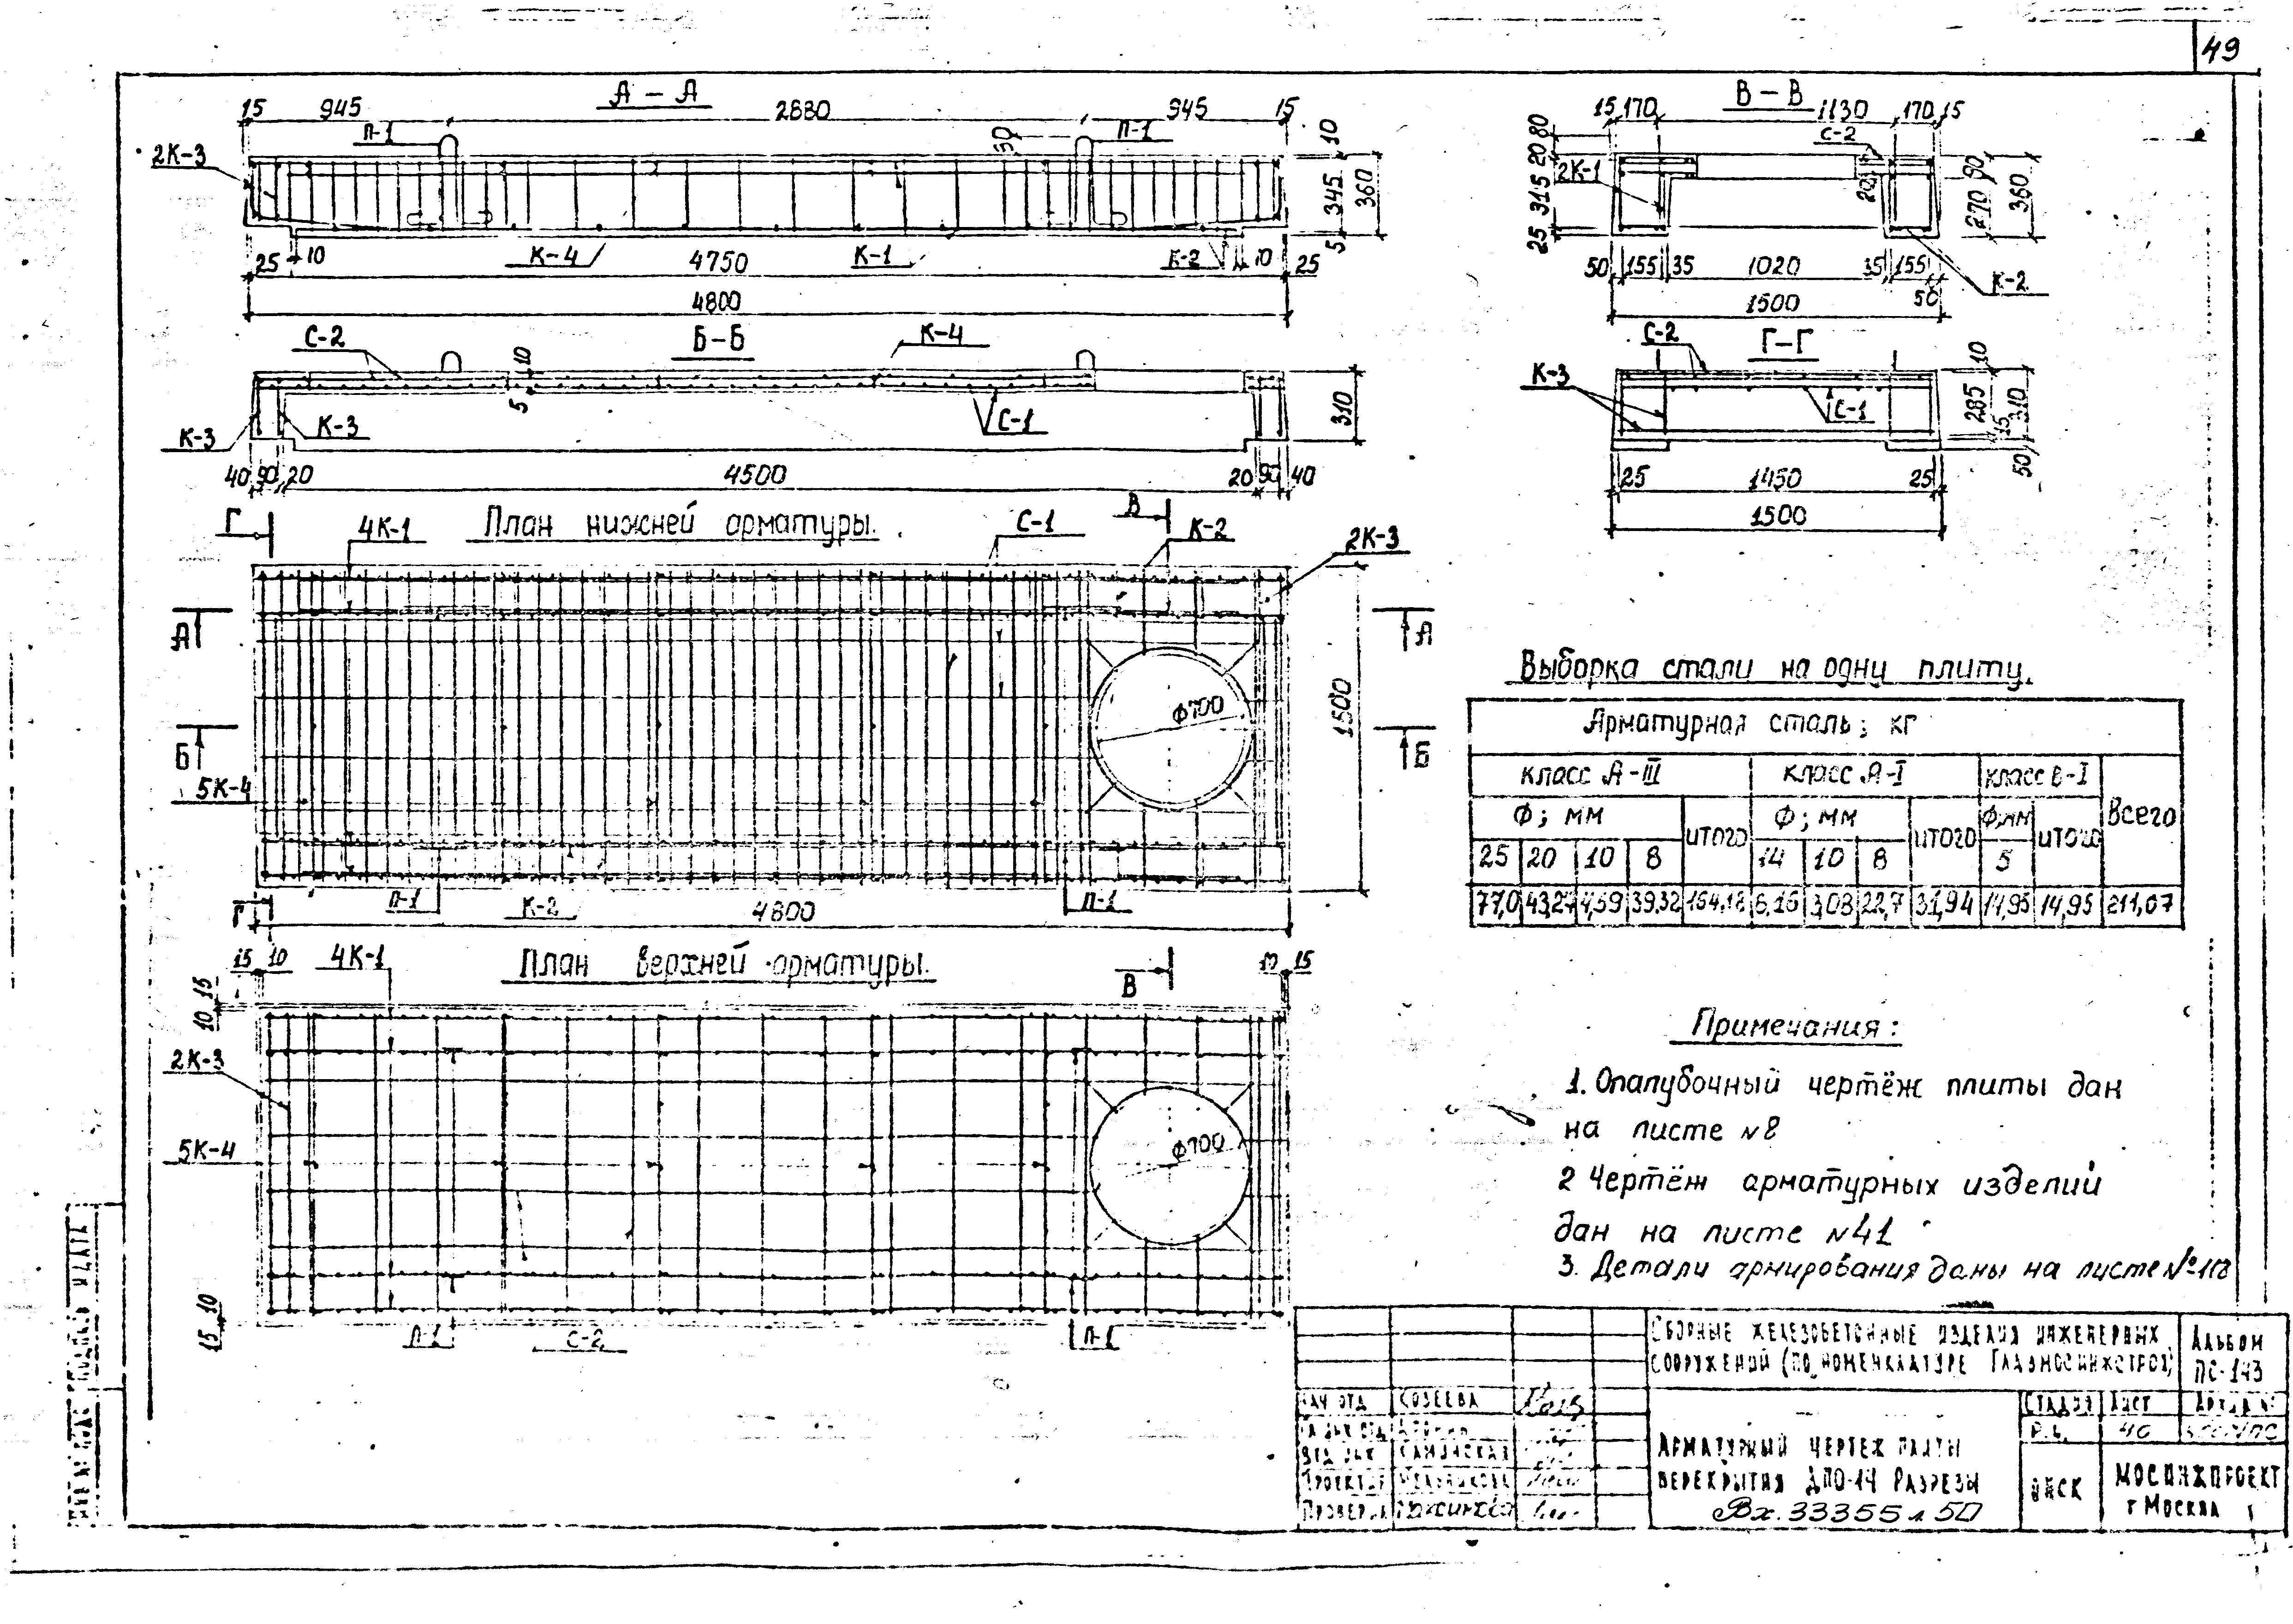 49
А – А
15 945 2880 945 15
П-1 П-1
2К-3
50 10
345 360
5
25 10 К-4 4750 К-1 К-2 10 25
4800
В – В
15 170 1130 170 15
С-2
80
20
2К-1
315
25
20 90
270 360
50 155 35 1020 35 155 50
К-2
1500
Б-Б
С-2 К-4
10
5
310
К-3 К-3 С-1
40 90 20 4500 20 90 40
Г-Г
С-2
К-3
С-1
10
285 310
15
50
25 1450 25
1500
План нижней арматуры.
Г 4К-1 С-1 В К-2 2К-3
А А
Б Б
5К-4
Ф700
1500
П-1 К-2 4800 П-1
Г
План верхней арматуры.
15 10 4К-1 В 10 15
10 15
2К-3
5К-4
Ф700
15 10
П-1 С-2 П-1
Выборка стали на одну плиту.
Арматурная сталь; кг
класс А-III класс А-I класс В-I Всего
Ф; мм итого Ф; мм итого Ф;мм итого
25 20 10 8 14 10 8 5
77,0 43,27 4,59 39,32 164,18 6,16 3,08 22,7 31,94 14,95 14,95 211,07
Примечания:
1. Опалубочный чертёж плиты дан
на листе №8
2 Чертёж арматурных изделий
дан на листе №41
3. Детали армирования даны на листе №118
Сборные железобетонные изделия инженерных
сооружений (по номенклатуре Главмосинжстроя)
Альбом
ПС-143
Нач отд Созеева
Стадия Лист
Арматурный чертеж плиты
перекрытия ДПО-14 Разрезы
Вх. 33355 л 50
Мосинжпроект
г Москва